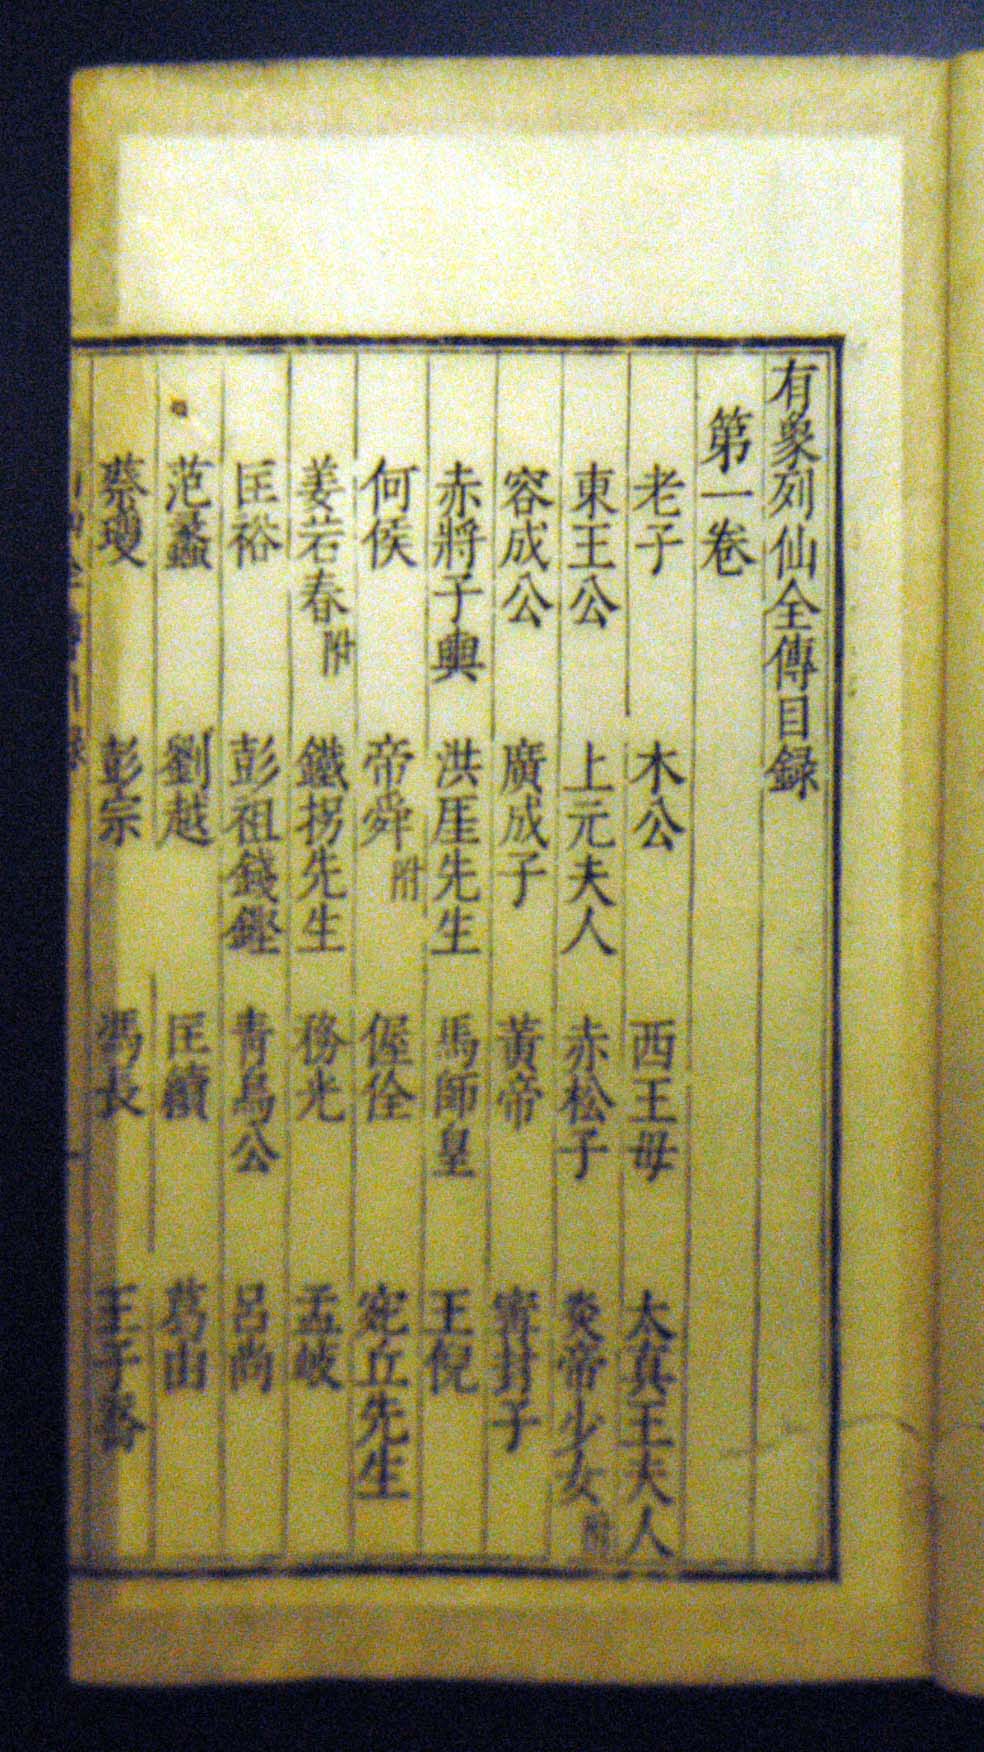 有象列仙全傳目録
第一卷
老子 木公 西王母 太真王夫人
東王公 上元夫人 赤松子 炎帝少女附
容成公 廣成子 黃帝 甯封子
赤將子輿 洪厓先生 馬師皇 王倪
何侯 帝舜附 偓佺 宛丘先生
姜若春附 鐵拐先生 務光 孟岐
匡裕 彭祖錢鏗 青烏公 呂尚
范蠡 劉越 匡續 葛由
蔡瓊 彭宗 馮長 王子喬